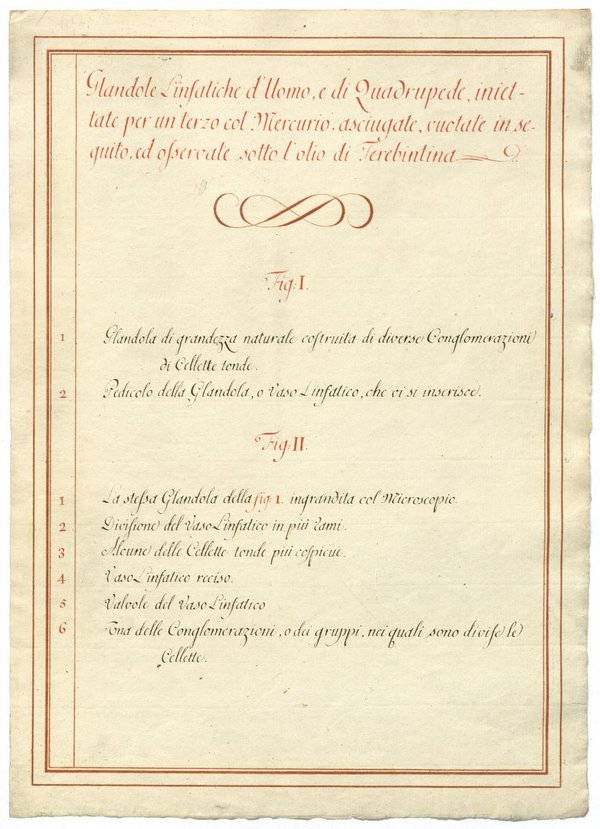 Glandole Linfatiche d'Uomo, e di Quadrupede, iniet-
tate per un terzo col Mercurio, asciugate, vuotate in se-
guito, ed oſservate sotto l'olio di Terebintina
Fig: I.
1 Glandola di grandezza naturale coſtruita di diverse Conglomerazioni
di Cellette tonde.
2 Pedicolo della Glandola, o Vaso Linfatico, che vi si inserisce.
Fig: II
1 La steſsa Glandola della fig: I. ingrandita col Microscopio.
2 Diviſione del Vaso Linfatico in più rami.
3 Alcune delle Cellette tonde più cospicue.
4 Vaso Linfatico reciso.
5 Valvole del Vaso Linfatico
6 Una delle Conglomerazioni, o dei gruppi, nei quali sono diviſe le
Cellette.